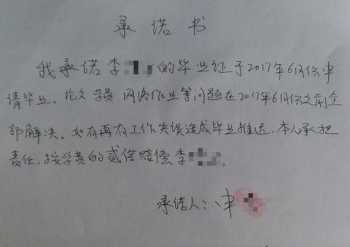 承诺书
我承诺李 的毕业证于2017年6月份申
请毕业。论文 学费 网络作业等问题在2017年6月份之前全
部解决。如有再有工作失误造成毕业推迟,本人承担
责任,按学费的 倍赔偿李 。
承诺人: